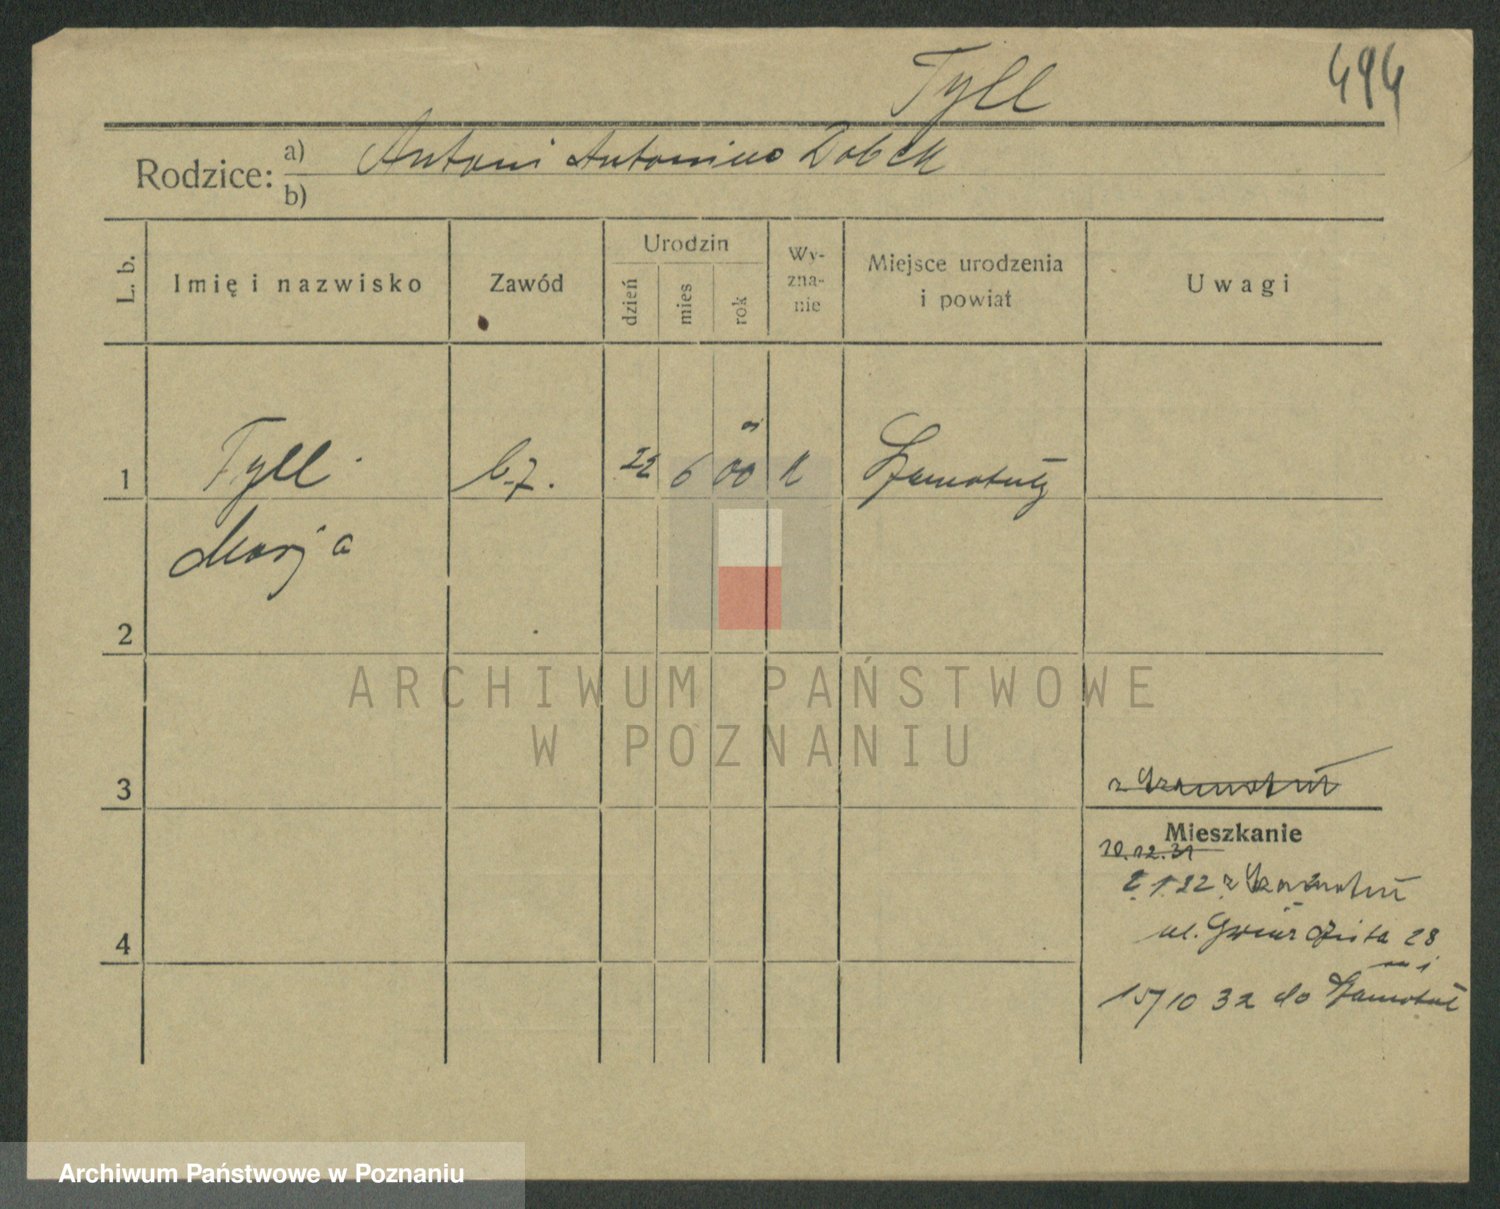 Tyll
494
Rodzice: a) Antoni Antonina Dobek
b)
L. b.
Imię i nazwisko
Zawód
Urodzin
dzień
mies
rok
Wy-
zna-
nie
Miejsce urodzenia
i powiat
Uwagi
1 Tyll b.z. 22 6 00 k Szamotuły
Marja
2
ARCHIWUM PAŃSTWOWE
W POZNANIU
3
z Szamotuł
Mieszkanie
10.12.31
2.1.22 z Szamotuł
4
ul. 28
15/10 32 do Szamotuł
Archiwum Państwowe w Poznaniu